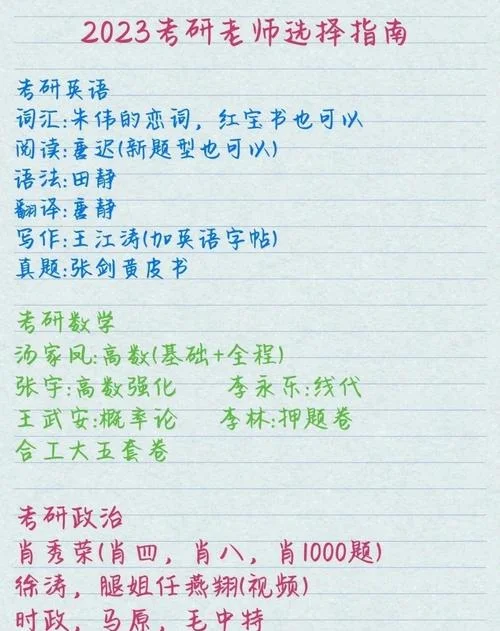 2023考研老师选择指南
考研英语
词汇:朱伟的恋词，红宝书也可以
阅读:唐迟(新题型也可以)
语法:田静
翻译:唐静
写作:王江涛(加英语字帖)
真题:张剑黄皮书
考研数学
汤家凤:高数(基础+全程)
张宇:高数强化 李永乐:线代
王武安:概率论 李林:押题卷
合工大五套卷
考研政治
肖秀荣(肖四，肖八，肖1000题)
徐涛，腿姐任燕翔(视频)
时政，马原，毛中特